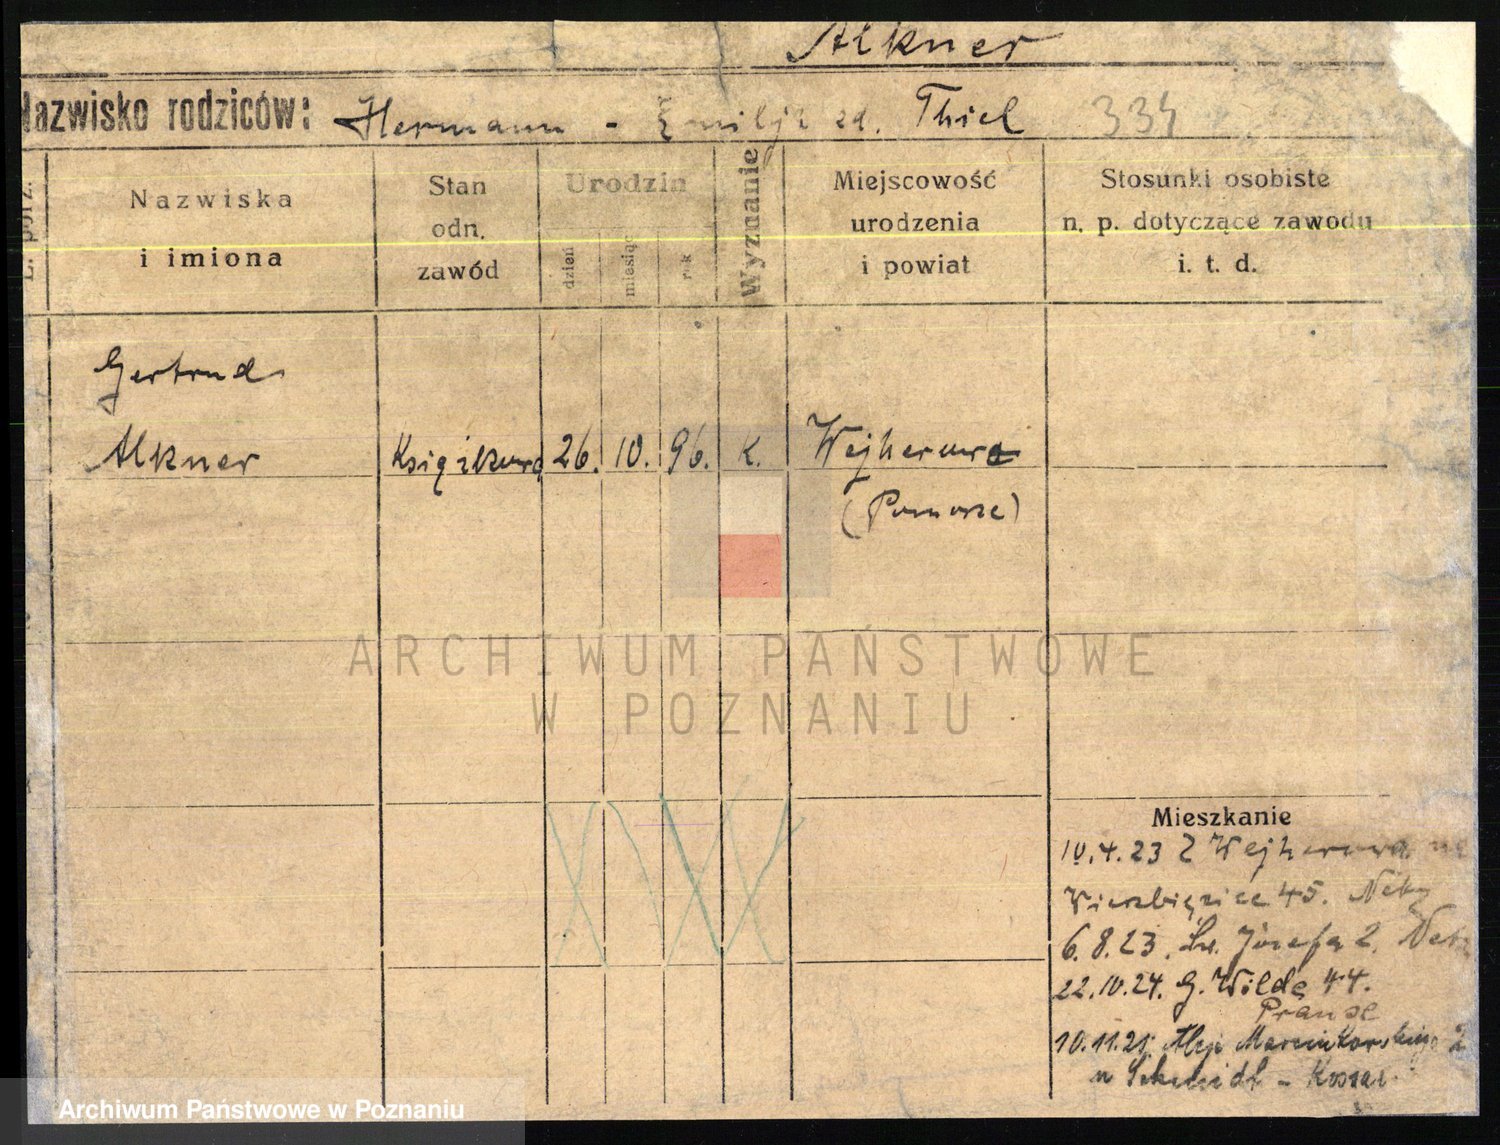 Alkner
Nazwisko rodziców: Hermann - Emilja zd. Thiel 334
L. porz.
Nazwiska
i imiona
Stan
odn.
zawód
Urodzin
dzień
miesiąc
rok
Wyznanie
Miejscowość
urodzenia
i powiat
Stosunki osobiste
n. p. dotyczące zawodu
i. t. d.
Gertrud
Alkner Książkowa 26. 10. 96. K. Wejherowo
(Pomorze)
ARCHIWUM PAŃSTWOWE
W POZNANIU
Mieszkanie
10.4.23 Z Wejherowa na
Wierzbięcice 45.
6.8.23. Św. Józefa 2.
22.10.24. G. Wilda 44.
10.11.25. Aleje Marcinkowskiego 2
u Schmidt -
Archiwum Państwowe w Poznaniu